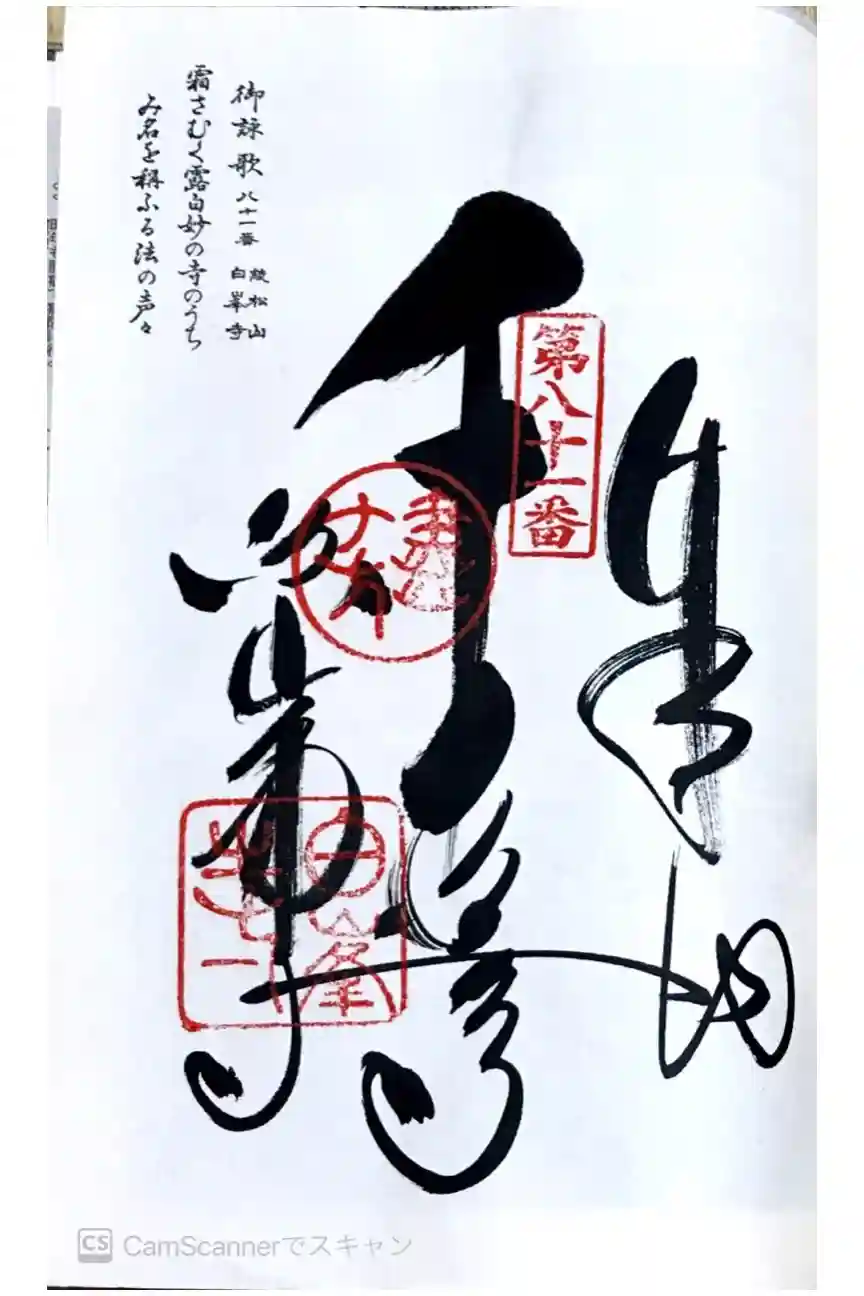 奉納
第八十一番
千手尊
白峯寺
御詠歌 八十一番 綾松山 白峯寺
霜さむく露白妙の寺のうち
み名を称ふる法の声々
CS CamScannerでスキャン